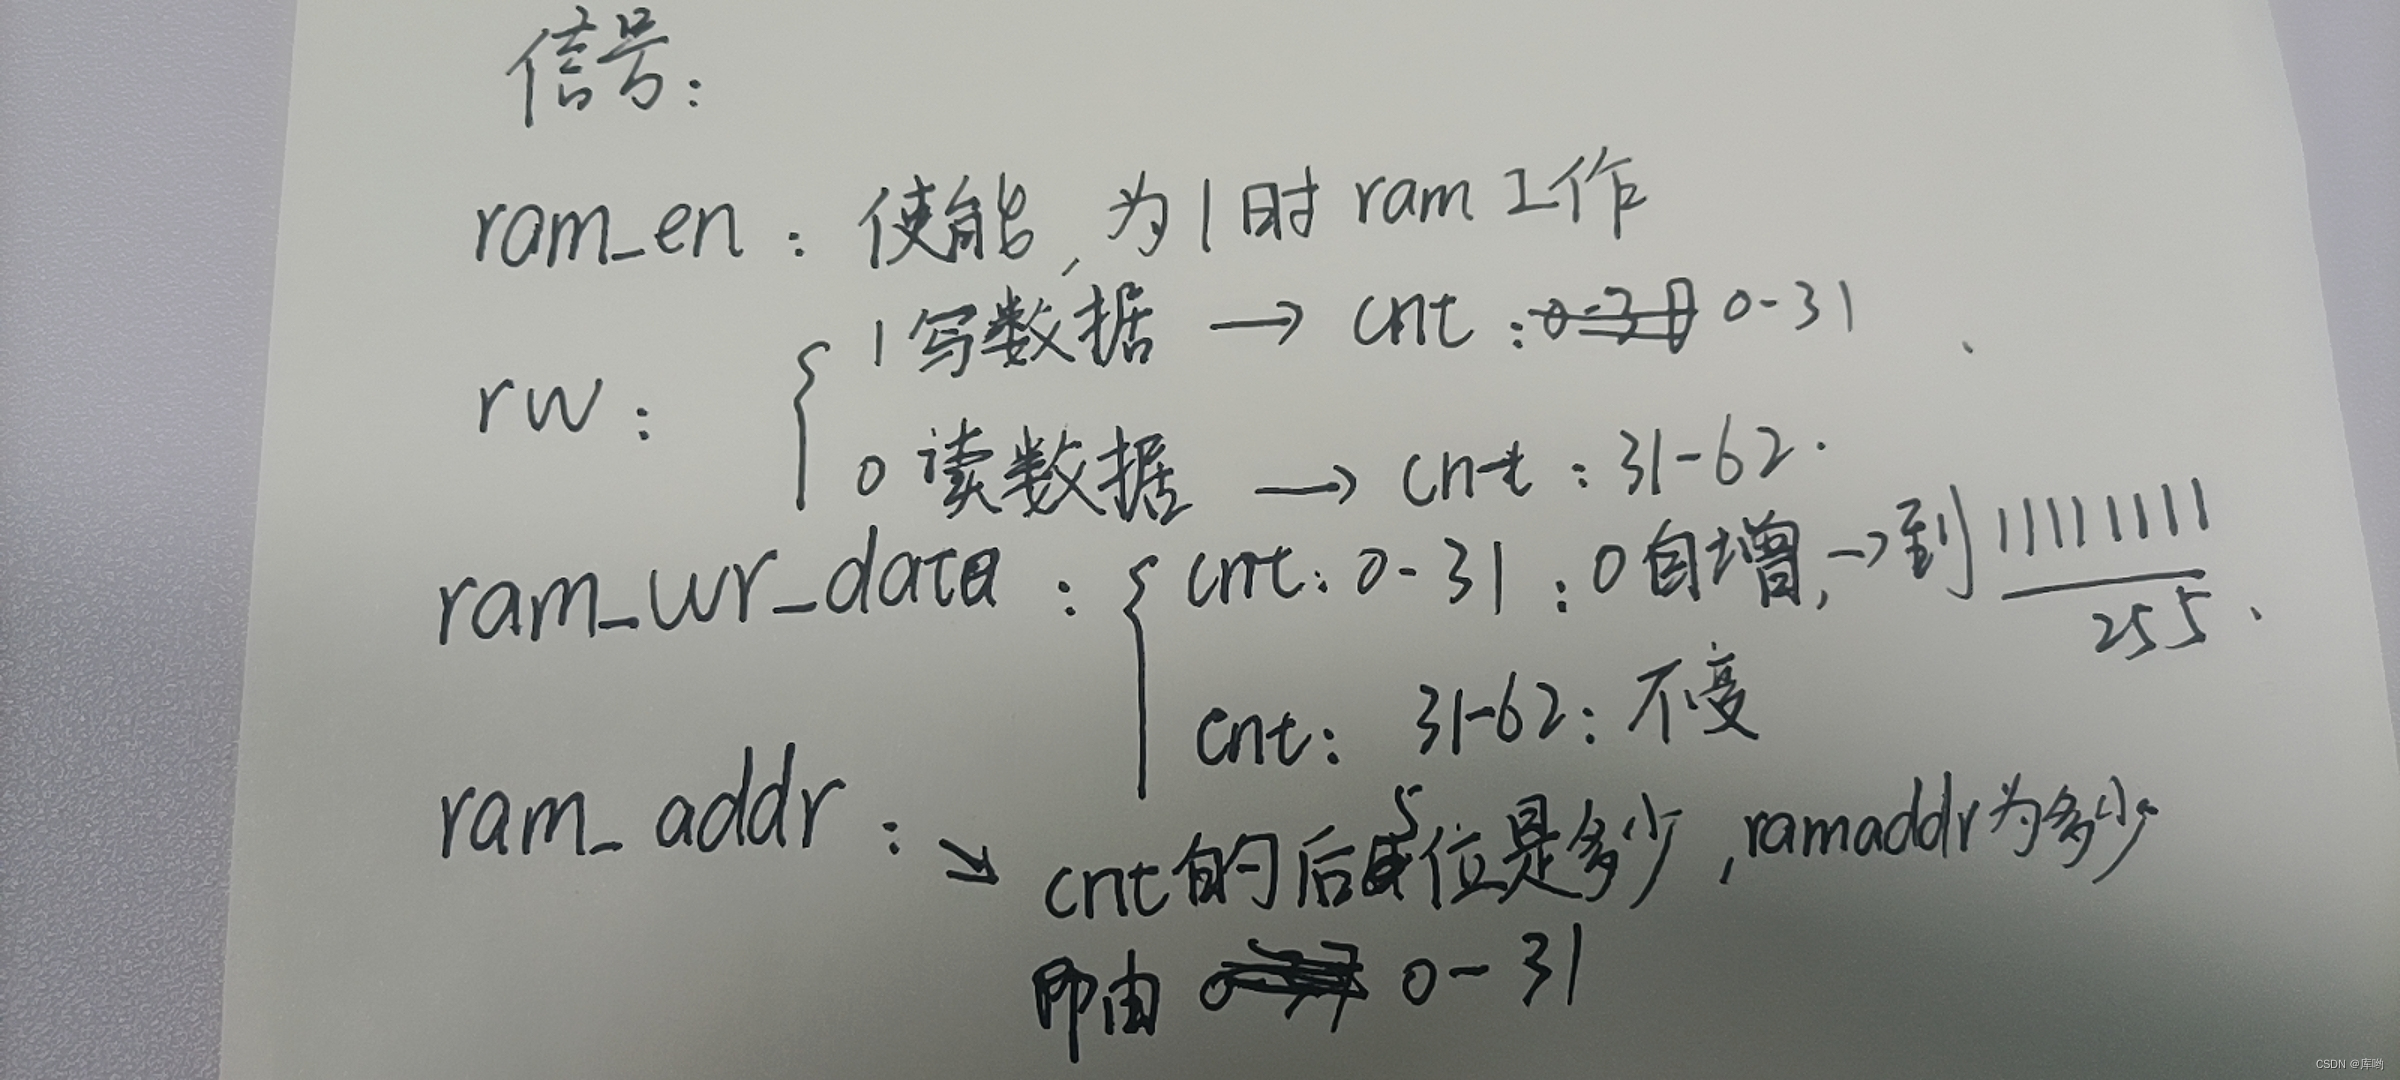 信号：
ram_en：使能，为1时ram工作
1写数据 → cnt：0-31
rw：
0读数据 → cnt：31-62.
ram_wr_data：cnt：0-31：0自增，→到11111111
255.
cnt：31-62：不变
ram_addr：↘
cnt的后5位是多少，ramaddr为多少
即由 0-31
CSDN @库哟